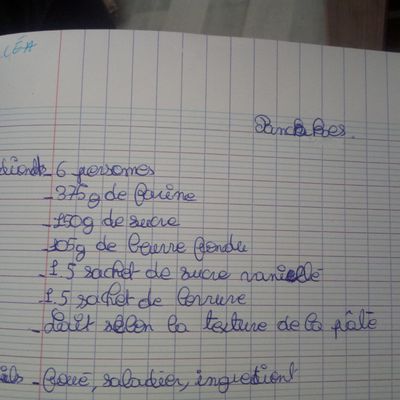 LÉA
Pancakes.
dients - 6 personnes
- 375g de farine
- 150g de sucre
- 105g de beurre fondu
- 1.5 sachet de sucre vanillé
1.5 sachet de levure
- Lait selon la texture de la pâte
ils - foué, saladier, ingredient